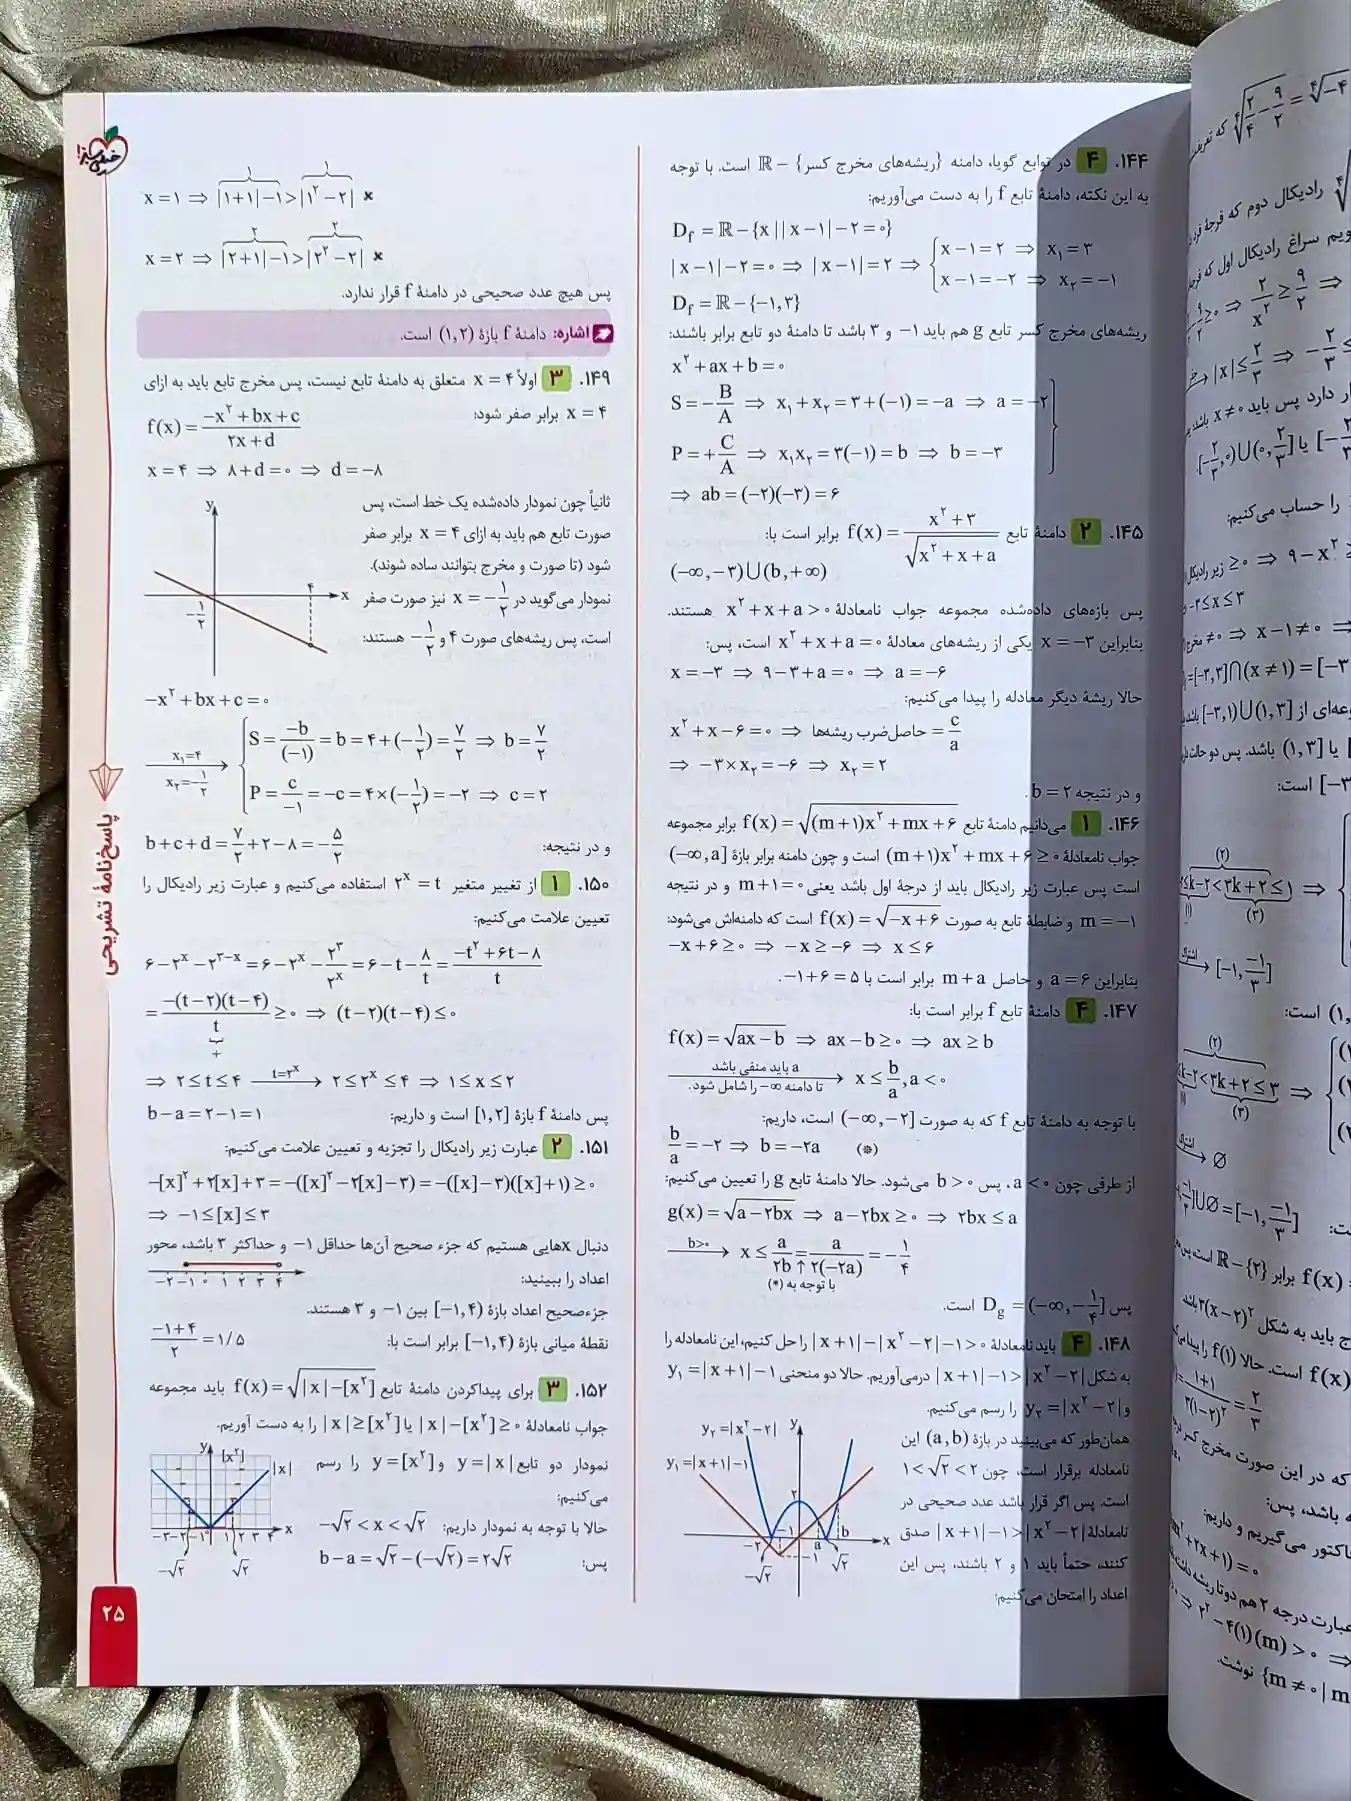 ۱۴۴. ۴ در توابع گویا، دامنه {ریشه‌های مخرج کسر} − ℝ است. با توجه
به این نکته، دامنهٔ تابع f را به دست می‌آوریم:
D_f = ℝ − {x | |x − ۱| − ۲ = ۰}
|x − ۱| − ۲ = ۰ ⇒ |x − ۱| = ۲ ⇒ { x − ۱ = ۲ ⇒ x₁ = ۳
x − ۱ = −۲ ⇒ x₂ = −۱
D_f = ℝ − {−۱, ۳}
ریشه‌های مخرج کسر تابع g هم باید ۱− و ۳ باشد تا دامنهٔ دو تابع برابر باشند:
x² + ax + b = ۰
S = −B/A ⇒ x₁ + x₂ = ۳ + (−۱) = −a ⇒ a = −۲
P = +C/A ⇒ x₁x₂ = ۳(−۱) = b ⇒ b = −۳
⇒ ab = (−۲)(−۳) = ۶
۱۴۵. ۲ دامنهٔ تابع f(x) = (x² + ۳)/√(x² + x + a) برابر است با:
(−∞, −۳) ∪ (b, +∞)
پس بازه‌های داده‌شده مجموعه جواب نامعادلهٔ x² + x + a > ۰ هستند.
بنابراین x = −۳ یکی از ریشه‌های معادلهٔ x² + x + a = ۰ است، پس:
x = −۳ ⇒ ۹ − ۳ + a = ۰ ⇒ a = −۶
حالا ریشهٔ دیگر معادله را پیدا می‌کنیم:
x² + x − ۶ = ۰ ⇒ حاصل‌ضرب ریشه‌ها = c/a
⇒ −۳ × x₂ = −۶ ⇒ x₂ = ۲
و در نتیجه b = ۲.
۱۴۶. ۱ می‌دانیم دامنهٔ تابع f(x) = √((m+۱)x² + mx + ۶) برابر مجموعه
جواب نامعادلهٔ (m+۱)x² + mx + ۶ ≥ ۰ است و چون دامنه برابر بازهٔ (−∞, a]
است پس عبارت زیر رادیکال باید از درجهٔ اول باشد یعنی m + ۱ = ۰ و در نتیجه
m = −۱ و ضابطهٔ تابع به صورت f(x) = √(−x + ۶) است که دامنه‌اش می‌شود:
−x + ۶ ≥ ۰ ⇒ −x ≥ −۶ ⇒ x ≤ ۶
بنابراین a = ۶ و حاصل m + a برابر است با ۵ = ۶ + ۱−.
۱۴۷. ۴ دامنهٔ تابع f برابر است با:
f(x) = √(ax − b) ⇒ ax − b ≥ ۰ ⇒ ax ≥ b
a باید منفی باشد
تا دامنه ∞− را شامل شود.
→ x ≤ b/a, a < ۰
با توجه به دامنهٔ تابع f که به صورت (−∞, −۲] است، داریم:
b/a = −۲ ⇒ b = −۲a (*)
از طرفی چون a < ۰، پس b > ۰ می‌شود. حالا دامنهٔ تابع g را تعیین می‌کنیم:
g(x) = √(a − ۲bx) ⇒ a − ۲bx ≥ ۰ ⇒ ۲bx ≤ a
b>۰ → x ≤ a/۲b = a/۲(−۲a) = −۱/۴
↑ با توجه به (*)
پس D_g = (−∞, −۱/۴] است.
۱۴۸. ۴ باید نامعادلهٔ |x + ۱| − |x² − ۲| − ۱ > ۰ را حل کنیم، این نامعادله را
به شکل |x + ۱| − ۱ > |x² − ۲| درمی‌آوریم. حالا دو منحنی y₁ = |x + ۱| − ۱
و y₂ = |x² − ۲| را رسم می‌کنیم.
همان‌طور که می‌بینید در بازهٔ (a, b) این
نامعادله برقرار است، چون ۱ < √۲ < ۲
است. پس اگر قرار باشد عدد صحیحی در
نامعادلهٔ |x + ۱| − ۱ > |x² − ۲| صدق
کنند، حتماً باید ۱ و ۲ باشند، پس این
اعداد را امتحان می‌کنیم:
y₂ = |x² − ۲| y
y₁ = |x + ۱| − ۱
۲
−۲ −۱ a b x
−۱
−√۲ √۲
خیلی سبز!
۱ ۱
x = ۱ ⇒ |۱+۱| − ۱ > |۱² − ۲| ×
۲ ۲
x = ۲ ⇒ |۲+۱| − ۱ > |۲² − ۲| ×
پس هیچ عدد صحیحی در دامنهٔ f قرار ندارد.
اشاره: دامنهٔ f بازهٔ (۱, ۲) است.
۱۴۹. ۳ اولاً x = ۴ متعلق به دامنهٔ تابع نیست، پس مخرج تابع باید به ازای
x = ۴ برابر صفر شود: f(x) = (−x² + bx + c)/(۲x + d)
x = ۴ ⇒ ۸ + d = ۰ ⇒ d = −۸
ثانیاً چون نمودار داده‌شده یک خط است، پس
صورت تابع هم باید به ازای x = ۴ برابر صفر
شود (تا صورت و مخرج بتوانند ساده شوند).
نمودار می‌گوید در x = −۱/۲ نیز صورت صفر
است، پس ریشه‌های صورت ۴ و −۱/۲ هستند:
y
۴ x
−۱/۲
−x² + bx + c = ۰
x₁=۴, x₂=−۱/۲ → { S = −b/(−۱) = b = ۴ + (−۱/۲) = ۷/۲ ⇒ b = ۷/۲
P = c/−۱ = −c = ۴ × (−۱/۲) = −۲ ⇒ c = ۲
و در نتیجه: b + c + d = ۷/۲ + ۲ − ۸ = −۵/۲
۱۵۰. ۱ از تغییر متغیر ۲ˣ = t استفاده می‌کنیم و عبارت زیر رادیکال را
تعیین علامت می‌کنیم:
۶ − ۲ˣ − ۲³⁻ˣ = ۶ − ۲ˣ − ۲³/۲ˣ = ۶ − t − ۸/t = (−t² + ۶t − ۸)/t
= −(t − ۲)(t − ۴)/t ≥ ۰ ⇒ (t − ۲)(t − ۴) ≤ ۰
+
⇒ ۲ ≤ t ≤ ۴ t=۲ˣ → ۲ ≤ ۲ˣ ≤ ۴ ⇒ ۱ ≤ x ≤ ۲
پس دامنهٔ f بازهٔ [۱, ۲] است و داریم: b − a = ۲ − ۱ = ۱
۱۵۱. ۲ عبارت زیر رادیکال را تجزیه و تعیین علامت می‌کنیم:
−[x]² + ۲[x] + ۳ = −([x]² − ۲[x] − ۳) = −([x] − ۳)([x] + ۱) ≥ ۰
⇒ −۱ ≤ [x] ≤ ۳
دنبال xهایی هستیم که جزء صحیح آن‌ها حداقل ۱− و حداکثر ۳ باشد، محور
اعداد را ببینید:
−۲ −۱ ۰ ۱ ۲ ۳ ۴
جزءصحیح اعداد بازهٔ [−۱, ۴) بین ۱− و ۳ هستند.
نقطهٔ میانی بازهٔ [−۱, ۴) برابر است با: (−۱+۴)/۲ = ۱/۵
۱۵۲. ۳ برای پیداکردن دامنهٔ تابع f(x) = √(|x| − [x²]) باید مجموعه
جواب نامعادلهٔ |x| − [x²] ≥ ۰ یا |x| ≥ [x²] را به دست آوریم.
نمودار دو تابع y = |x| و y = [x²] را رسم
می‌کنیم:
حالا با توجه به نمودار داریم: −√۲ < x < √۲
پس: b − a = √۲ − (−√۲) = ۲√۲
y [x²]
|x|
−۳ −۲ −۱ ۰ ۱ ۲ ۳ x
−√۲ √۲
پاسخ‌نامهٔ تشریحی
۲۵